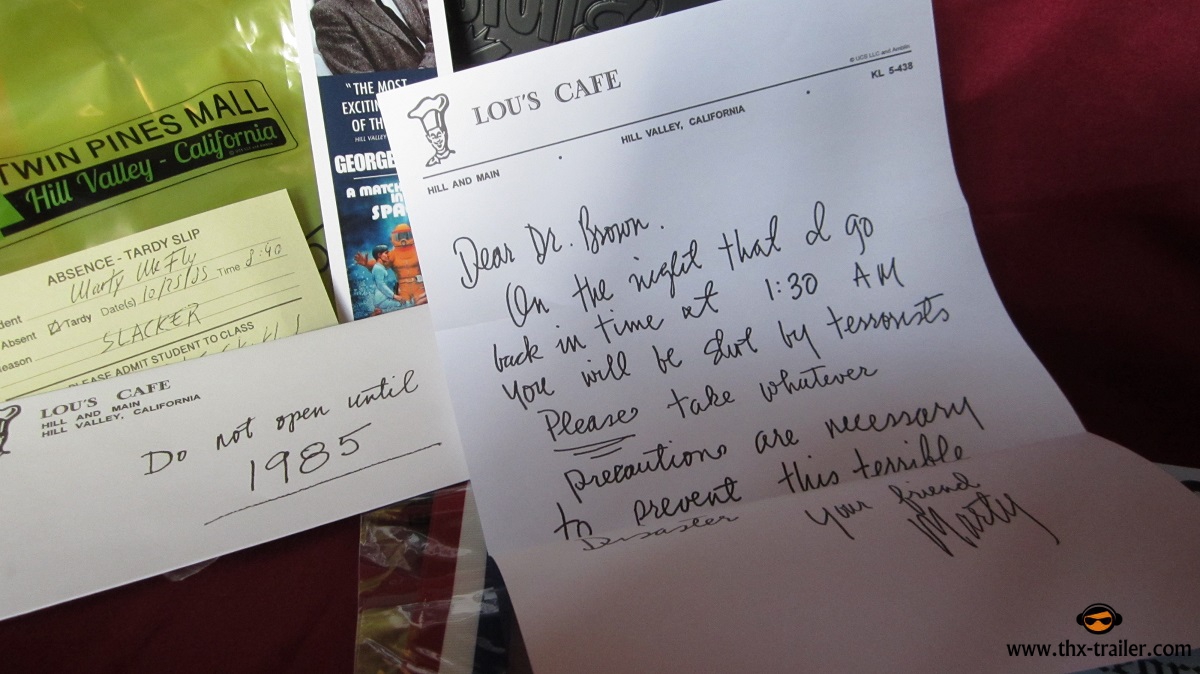 TWIN PINES MALL
Hill Valley - California
ABSENCE - TARDY SLIP
Marty McFly
Date(s) 10/25/85 Time 8:40
Absent Tardy
SLACKER
PLEASE ADMIT STUDENT TO CLASS
"THE MOST
OF TH
HILL VALLEY
GEORGE
A MATCH
IN
SPA
LOU'S CAFE
HILL AND MAIN
HILL VALLEY, CALIFORNIA
Do not open until
1985
© UCS LLC and Amblin
LOU'S CAFE
KL 5-438
HILL VALLEY, CALIFORNIA
HILL AND MAIN
Dear Dr. Brown.
On the night that I go
back in time at 1:30 AM
you will be shot by terrorists
Please take whatever
precautions are necessary
to prevent this terrible
Disaster
Your friend
Marty
www.thx-trailer.com